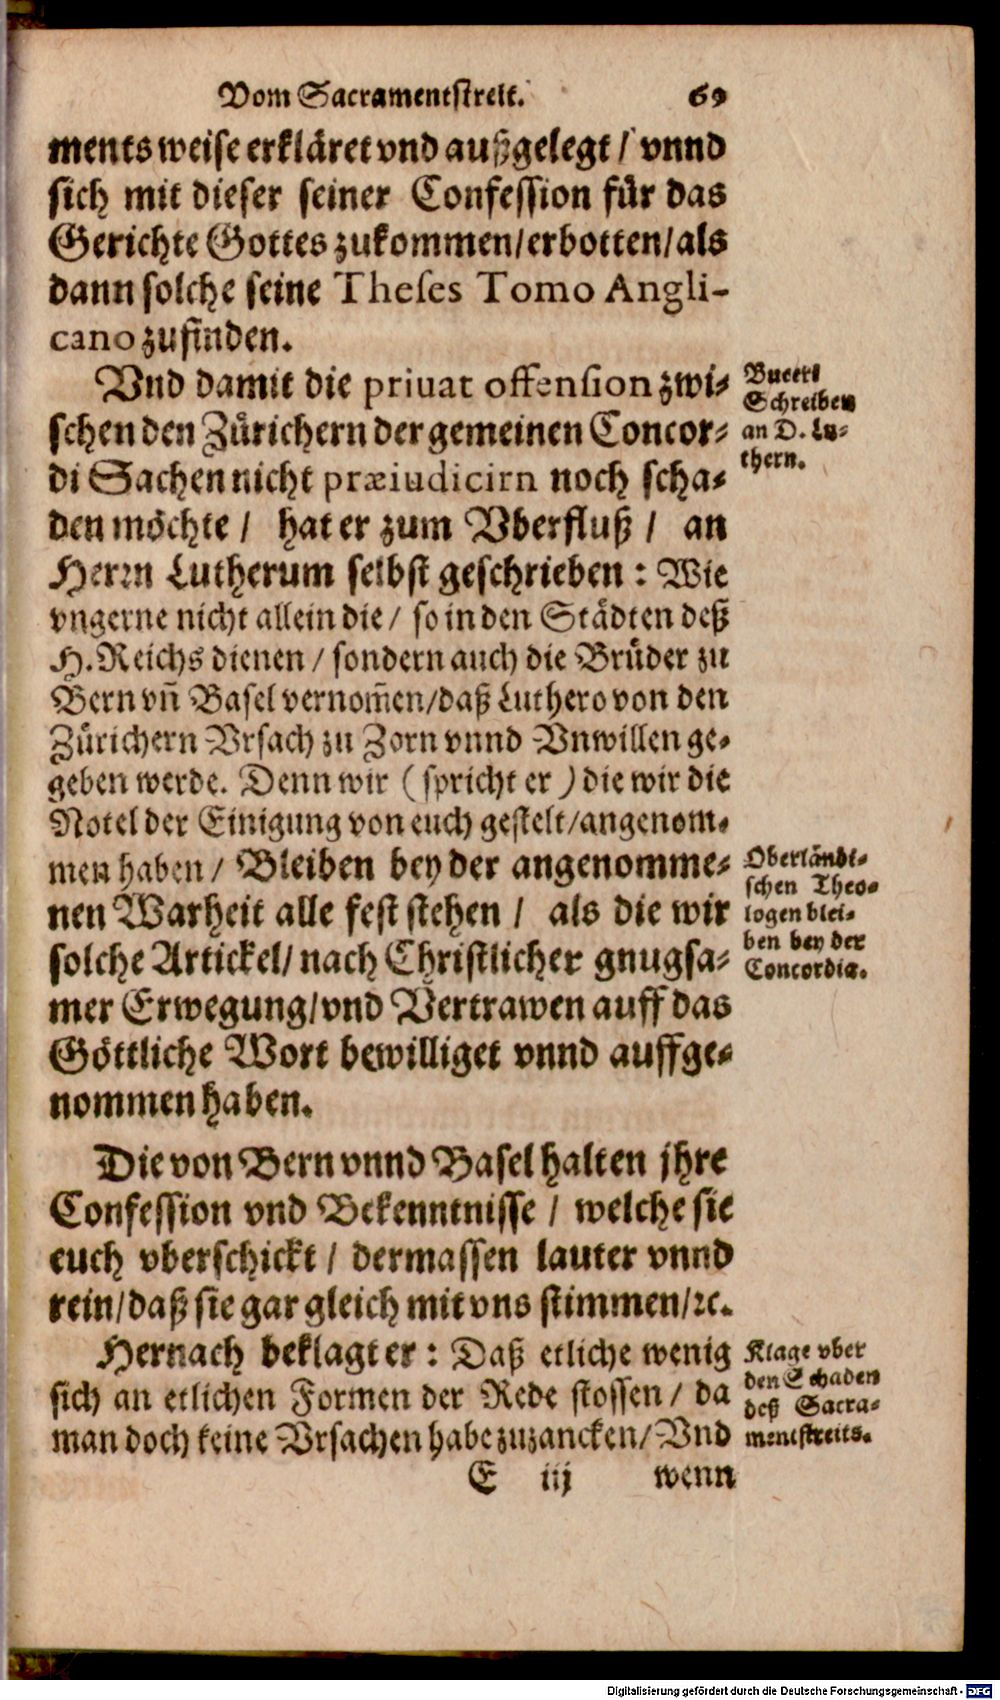 Vom Sacramentstreit. 69
ments weise erkläret vnd außgelegt / vnnd
sich mit dieser seiner Confession für das
Gerichte Gottes zukommen/erbotten/als
dann solche seine Theses Tomo Angli-
cano zufinden.
Vnd damit die priuat offension zwi-
schen den Zürichern der gemeinen Concor-
di Sachen nicht præiudicirn noch scha-
den möchte / hat er zum Vberfluß / an
Herrn Lutherum selbst geschrieben : Wie
vngerne nicht allein die / so in den Städten deß
H. Reichs dienen / sondern auch die Brüder zu
Bern vñ Basel vernom̃en/daß Luthero von den
Zürichern Vrsach zu Zorn vnnd Vnwillen ge-
geben werde. Denn wir ( spricht er ) die wir die
Notel der Einigung von euch gestelt/angenom-
men haben / Bleiben bey der angenomme-
nen Warheit alle fest stehen / als die wir
solche Artickel/ nach Christlicher gnugsa-
mer Erwegung/vnd Vertrawen auff das
Göttliche Wort bewilliget vnnd auffge-
nommen haben.
Die von Bern vnnd Basel halten jhre
Confession vnd Bekenntnisse / welche sie
euch vberschickt / dermassen lauter vnnd
rein/daß sie gar gleich mit vns stimmen/ꝛc.
Hernach beklagt er : Daß etliche wenig
sich an etlichen Formen der Rede stossen / da
man doch keine Vrsachen habe zuzancken/ Vnd
E iij wenn
Bucers
Schreiben
an D. Lu-
thern.
Oberländi-
schen Theo-
logen blei-
ben bey der
Concordia.
Klage vber
den Schaden
deß Sacra-
mentstreits.
Digitalisierung gefördert durch die Deutsche Forschungsgemeinschaft - DFG